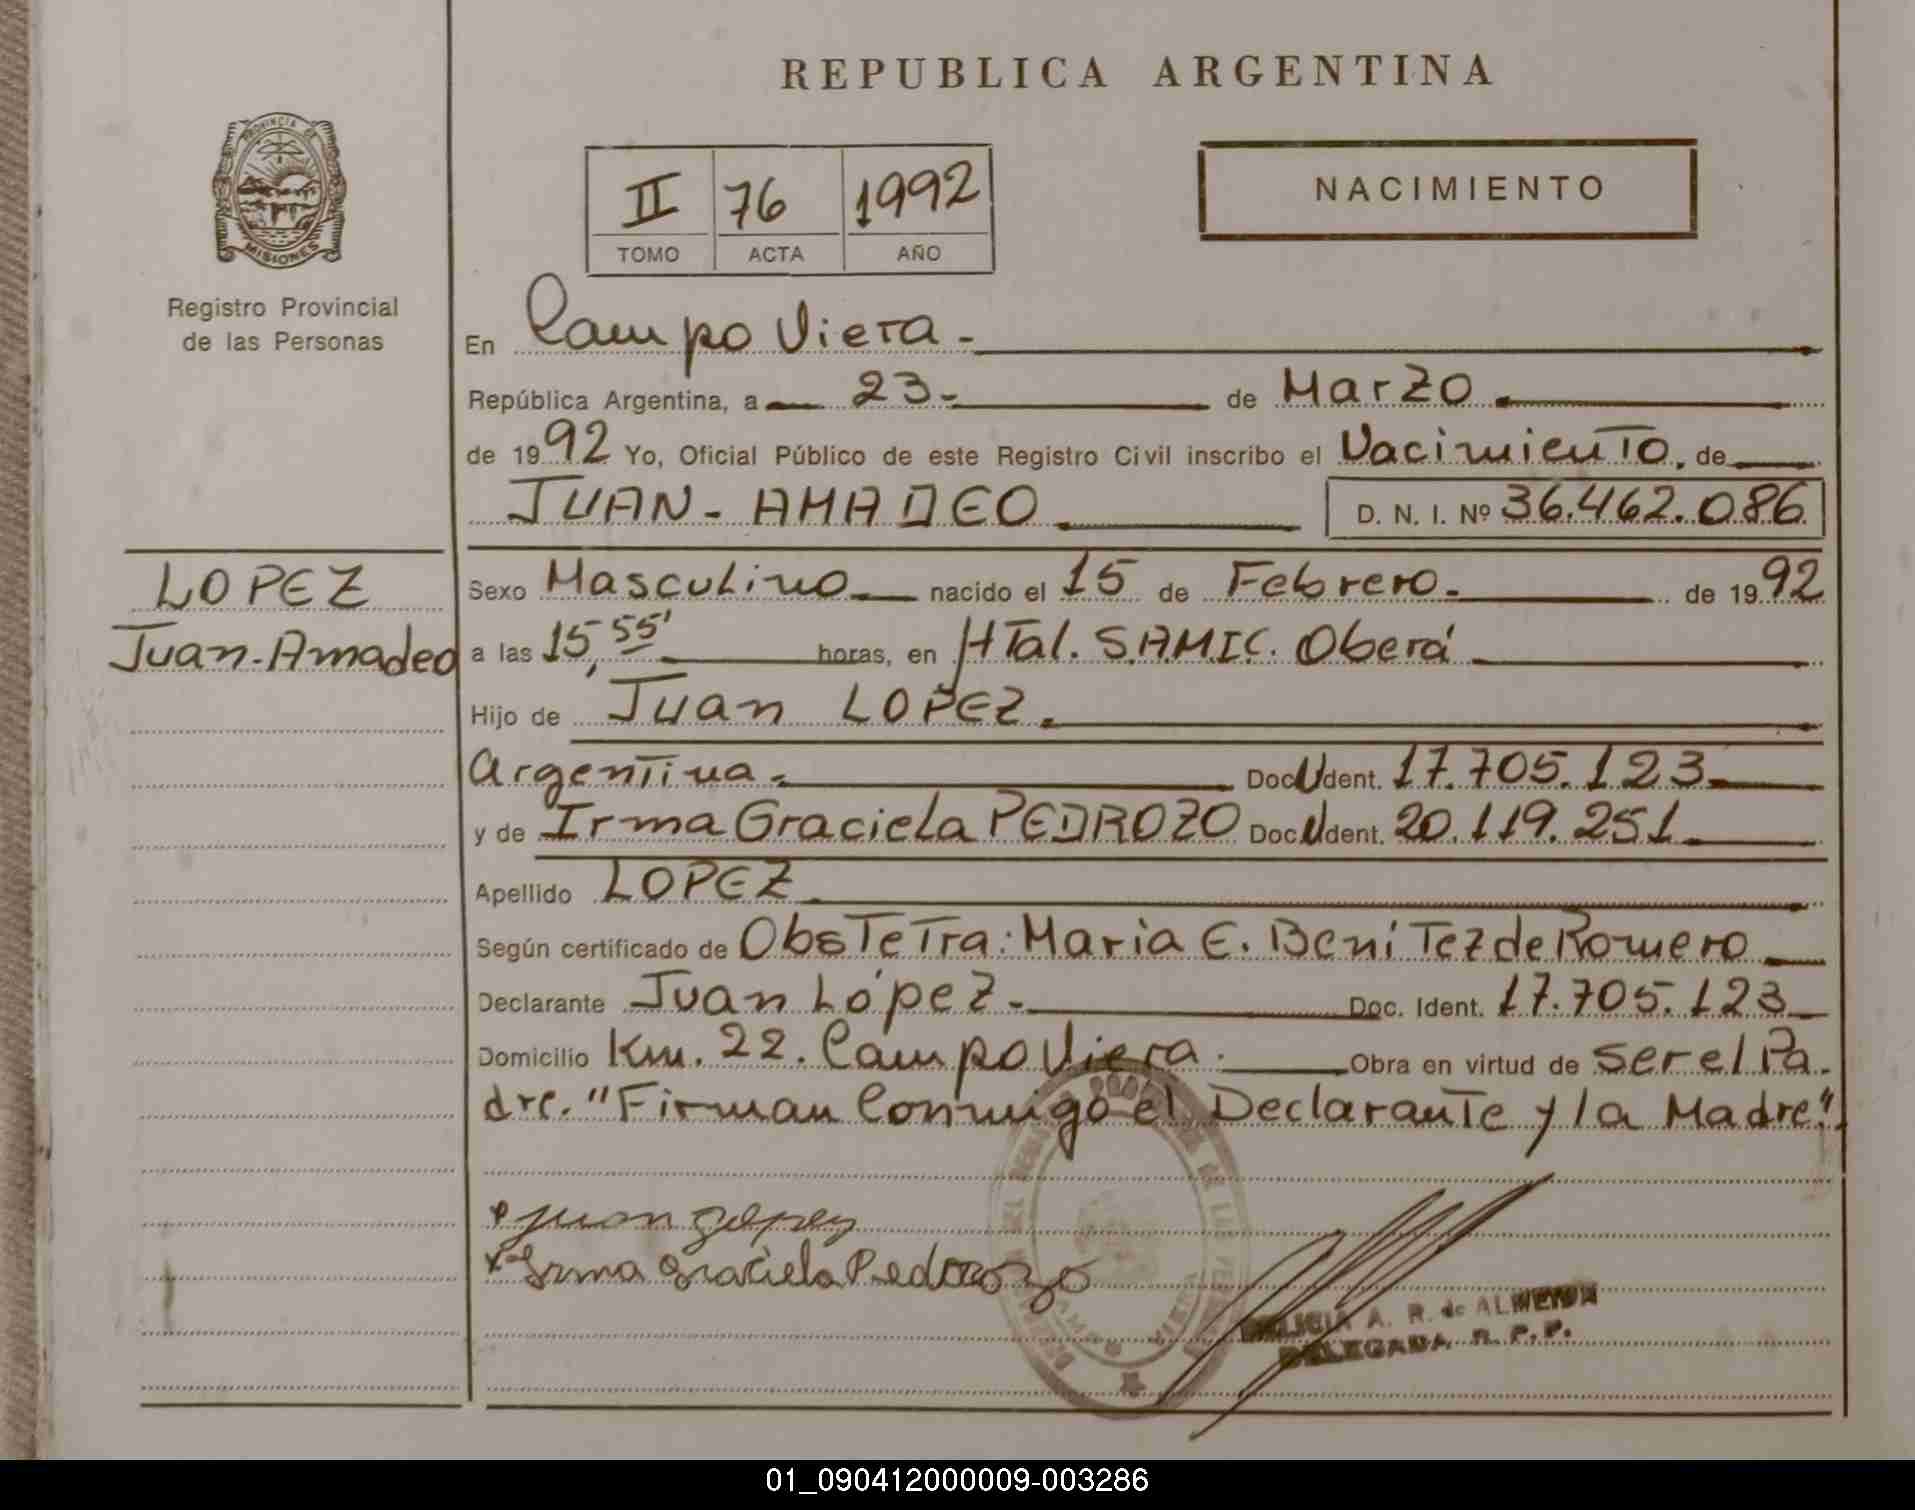 REPUBLICA ARGENTINA
PROVINCIA DE
MISIONES
Registro Provincial
de las Personas
II 76 1992
TOMO ACTA AÑO
NACIMIENTO
En Campo Viera.
República Argentina, a 23- de Marzo
de 1992 Yo, Oficial Público de este Registro Civil inscribo el Nacimiento, de
JUAN-AMADEO D. N. I. Nº 36.462.086
LOPEZ
Juan-Amadeo
Sexo Masculino nacido el 15 de Febrero. de 1992
a las 15,55' horas, en HTal. S.A.M.I.C. Oberá
Hijo de Juan LOPEZ.
Argentina. Doc U dent. 17.705.123
y de Irma Graciela PEDROZO Doc U dent. 20.119.251
Apellido LOPEZ
Según certificado de Obstetra: Maria E. Benitez de Romero
Declarante Juan López. Doc. Ident. 17.705.123
Domicilio Km. 22. Campo Viera. Obra en virtud de ser el Pa-
dre. "Firman Conmigo el Declarante y la Madre".
Juan Lopez
x Irma Graciela Pedrozo
A. R. de ALMEIDA
DELEGADA R. P. P.
01_090412000009-003286